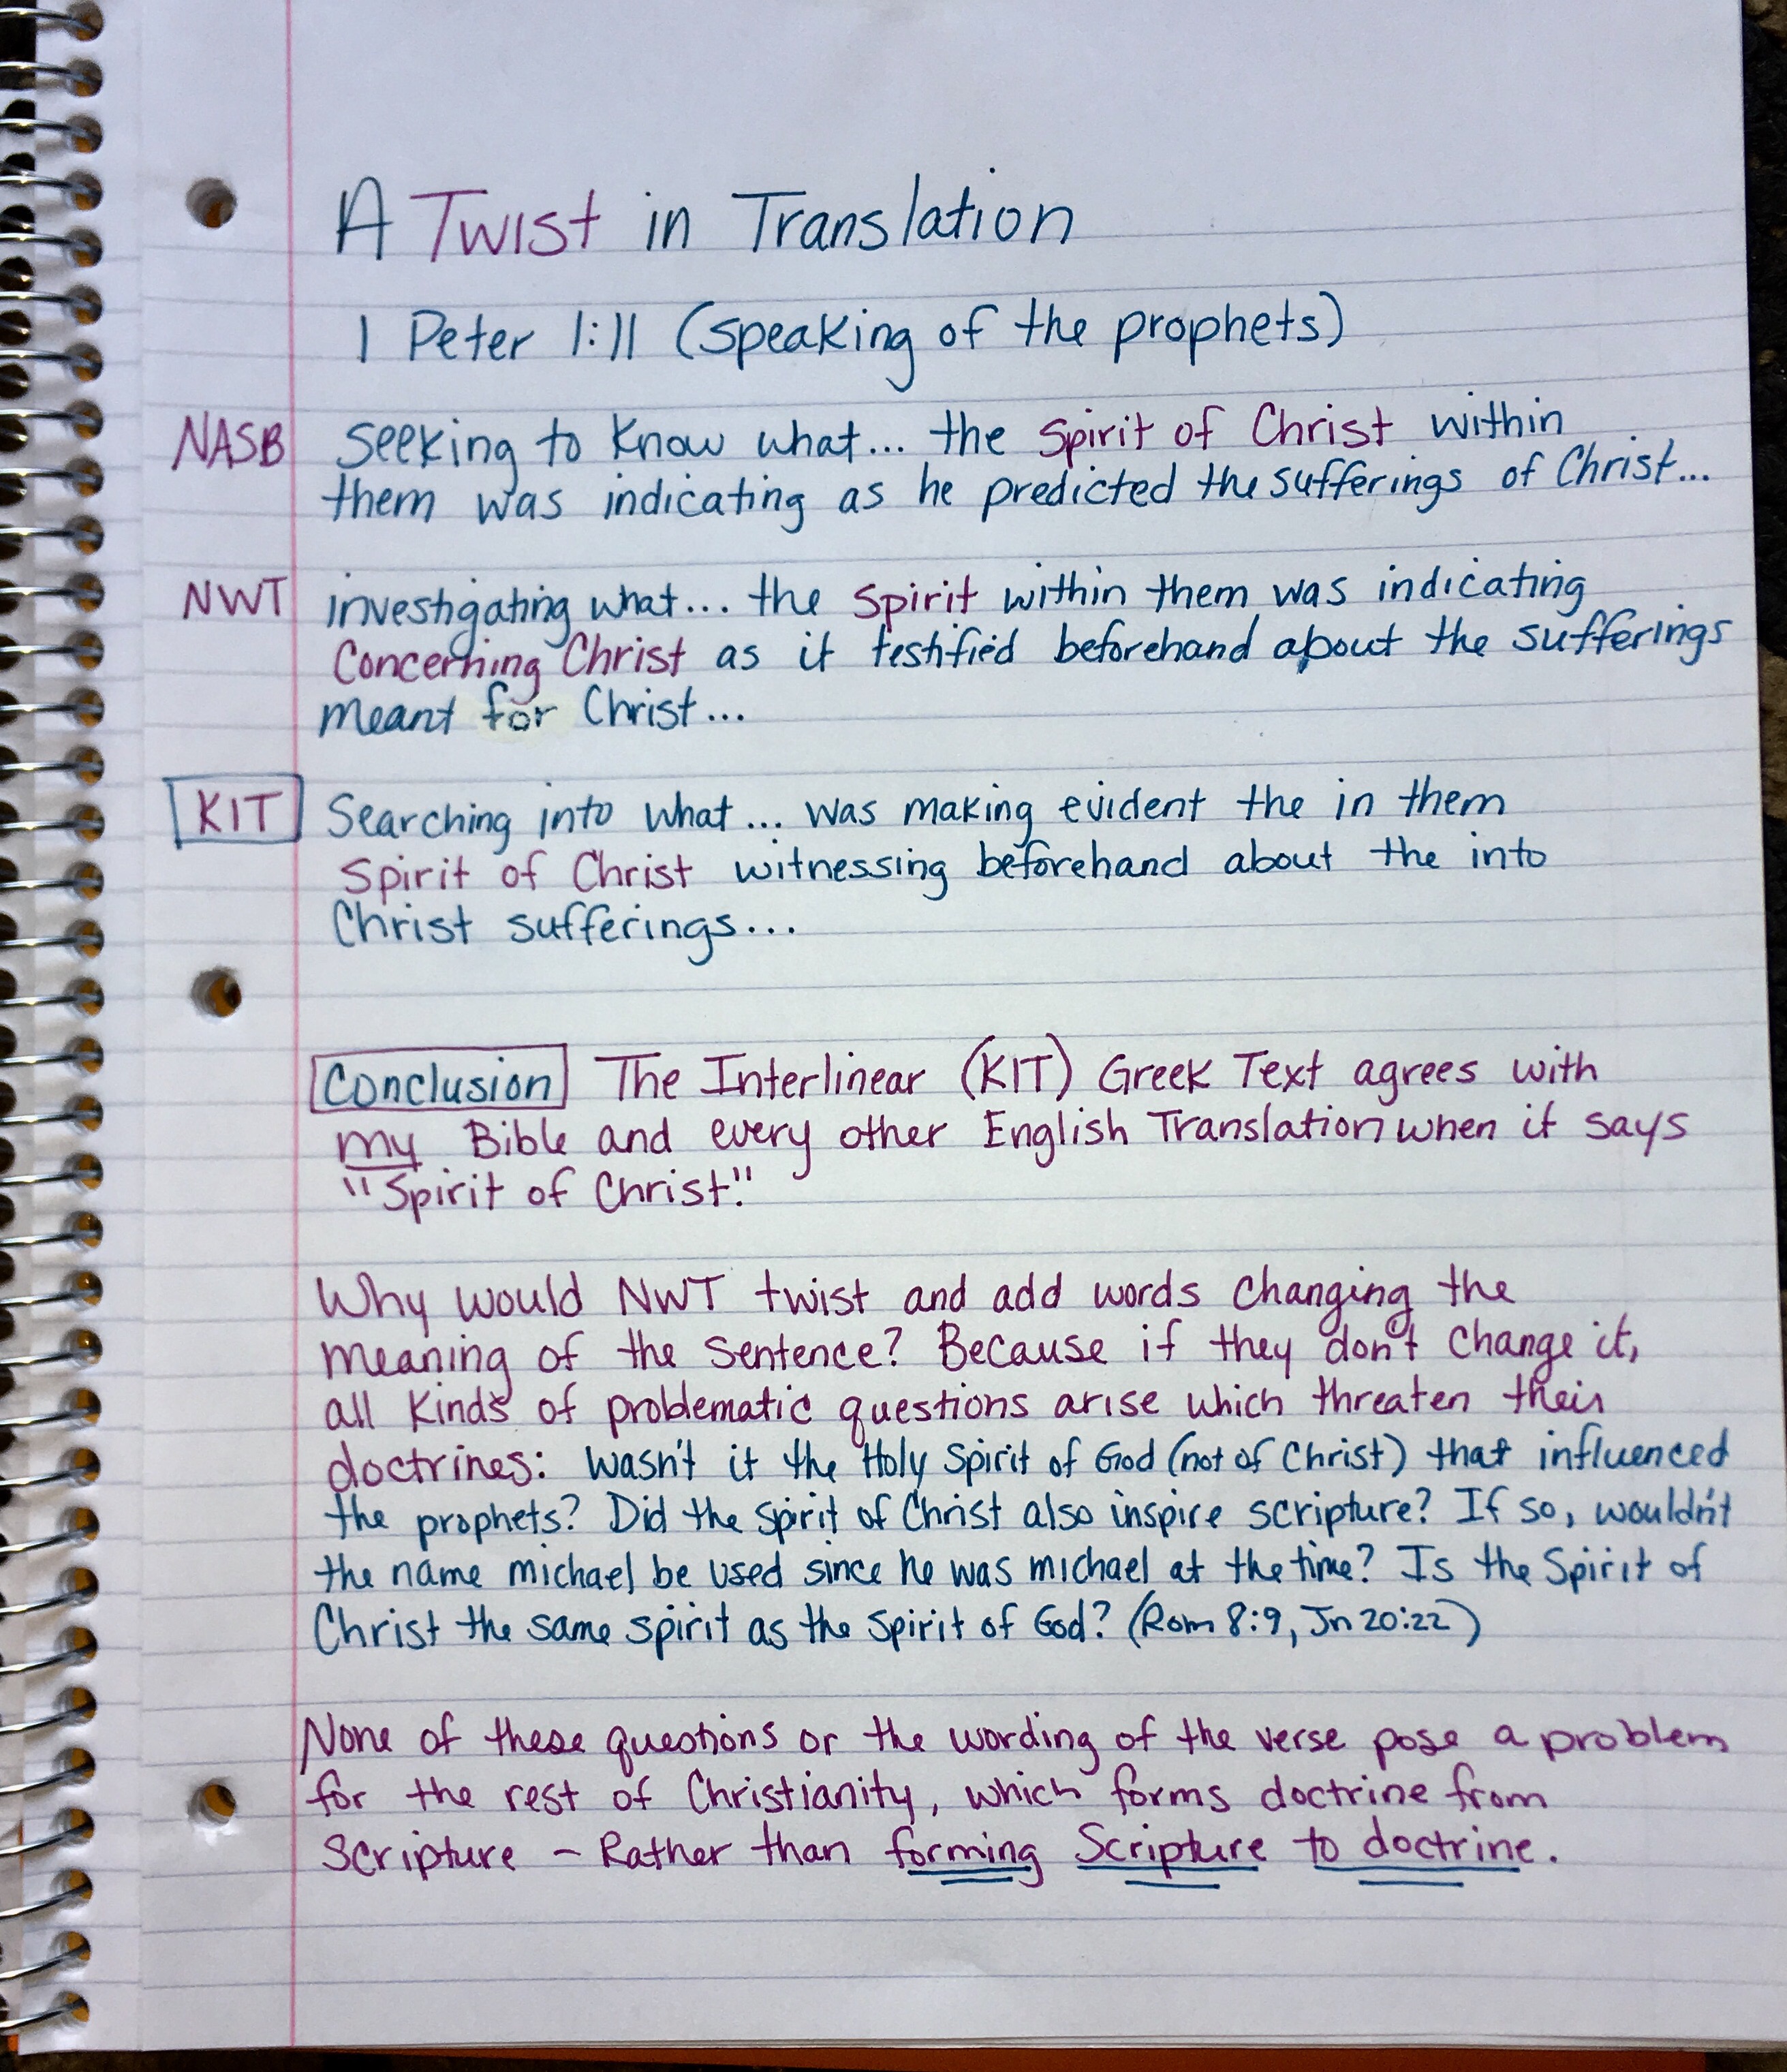 A Twist in Translation
1 Peter 1:11 (speaking of the prophets)
NASB seeking to know what... the Spirit of Christ within
them was indicating as he predicted the sufferings of Christ...
NWT investigating what... the spirit within them was indicating
concerning Christ as it testified beforehand about the sufferings
meant for Christ...
KIT Searching into what... was making evident the in them
spirit of Christ witnessing beforehand about the into
Christ sufferings...
Conclusion The Interlinear (KIT) Greek Text agrees with
my Bible and every other English Translation when it says
"Spirit of Christ."
Why would NWT twist and add words changing the
meaning of the sentence? Because if they don't change it,
all kinds of problematic questions arise which threaten their
doctrines: Wasn't it the Holy Spirit of God (not of Christ) that influenced
the prophets? Did the spirit of Christ also inspire scripture? If so, wouldn't
the name michael be used since he was michael at the time? Is the Spirit of
Christ the same spirit as the spirit of God? (Rom 8:9, Jn 20:22)
None of these questions or the wording of the verse pose a problem
for the rest of Christianity, which forms doctrine from
Scripture - Rather than forming Scripture to doctrine.